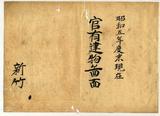 昭和五年度末現在
官有建物図面
新竹